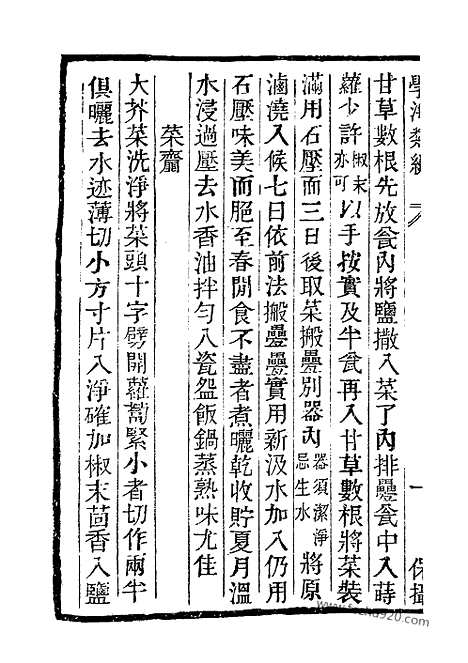 學海類編
甘草數根先放瓮內將鹽撒入菜了內排疊瓮中入蒔
蘿少許椒末亦可以手按實及半瓮再入甘草數根將菜裝
滿用石壓面三日後取菜搬疊別器內器須潔淨忌生水將原
滷澆入候七日依前法搬疊疊實用新汲水加入仍用
石壓味美而脆至春間食不盡者煮曬乾收貯夏月溫
水浸過壓去水香油拌勻入瓷盌飯鍋蒸熟味尤佳
菜虀
大芥菜洗淨將菜頭十字劈開蘿蔔緊小者切作兩半
俱曬去水迹薄切小方寸片入淨確加椒末茴香入鹽